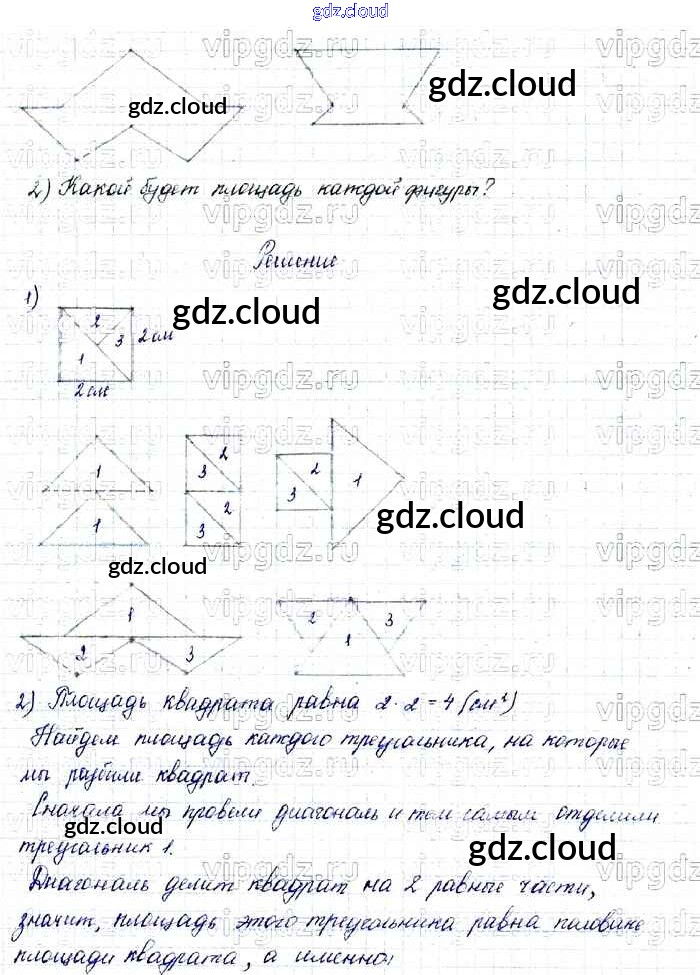 gdz.cloud
gdz.cloud
gdz.cloud
2) Какой будет площадь каждой фигуры?
Решение
1)
gdz.cloud
gdz.cloud
2
3
2 см
1
2 см
1
1
2
3
2
3
2
3
1
gdz.cloud
gdz.cloud
1
2
3
2
1
3
2) Площадь квадрата равна 2 · 2 = 4 (см²)
Найдем площадь каждого треугольника, на которые
мы разбили квадрат.
Сначала мы провели диагональ и тем самым отделили
gdz.cloud
треугольник 1.
gdz.cloud
Диагональ делит квадрат на 2 равные части,
значит, площадь этого треугольника равна половине
площади квадрата, а именно:
vipgdz.ru